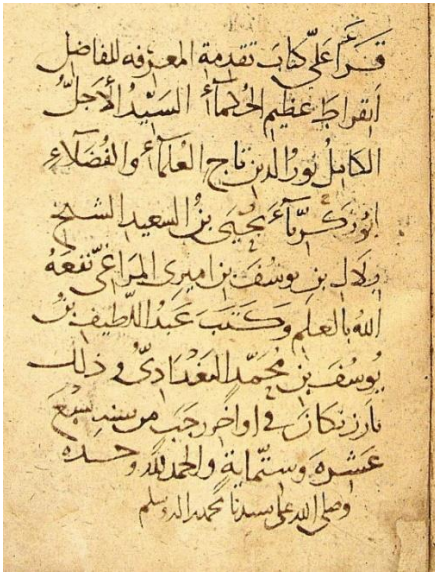 قرأ علي كتاب تقدمة المعرفه للفاضل
ابقراط عظيم الحكمآء السيد الأجل
الكامل نور الدين تاج العلمآء والفضلآء
ابو زكريآء يحيى بن السعيد الشيخ
بلال بن يوسف بن اميرى المراغي نفعه
الله بالعلم وكتب عبد اللطيف بن
يوسف بن محمد البغدادي وذلك
بارزنكان في اواخر رجب من سنه سبع
عشره وستماية والحمد لله وحده
وصلى الله على سيدنا محمد واله وسلم